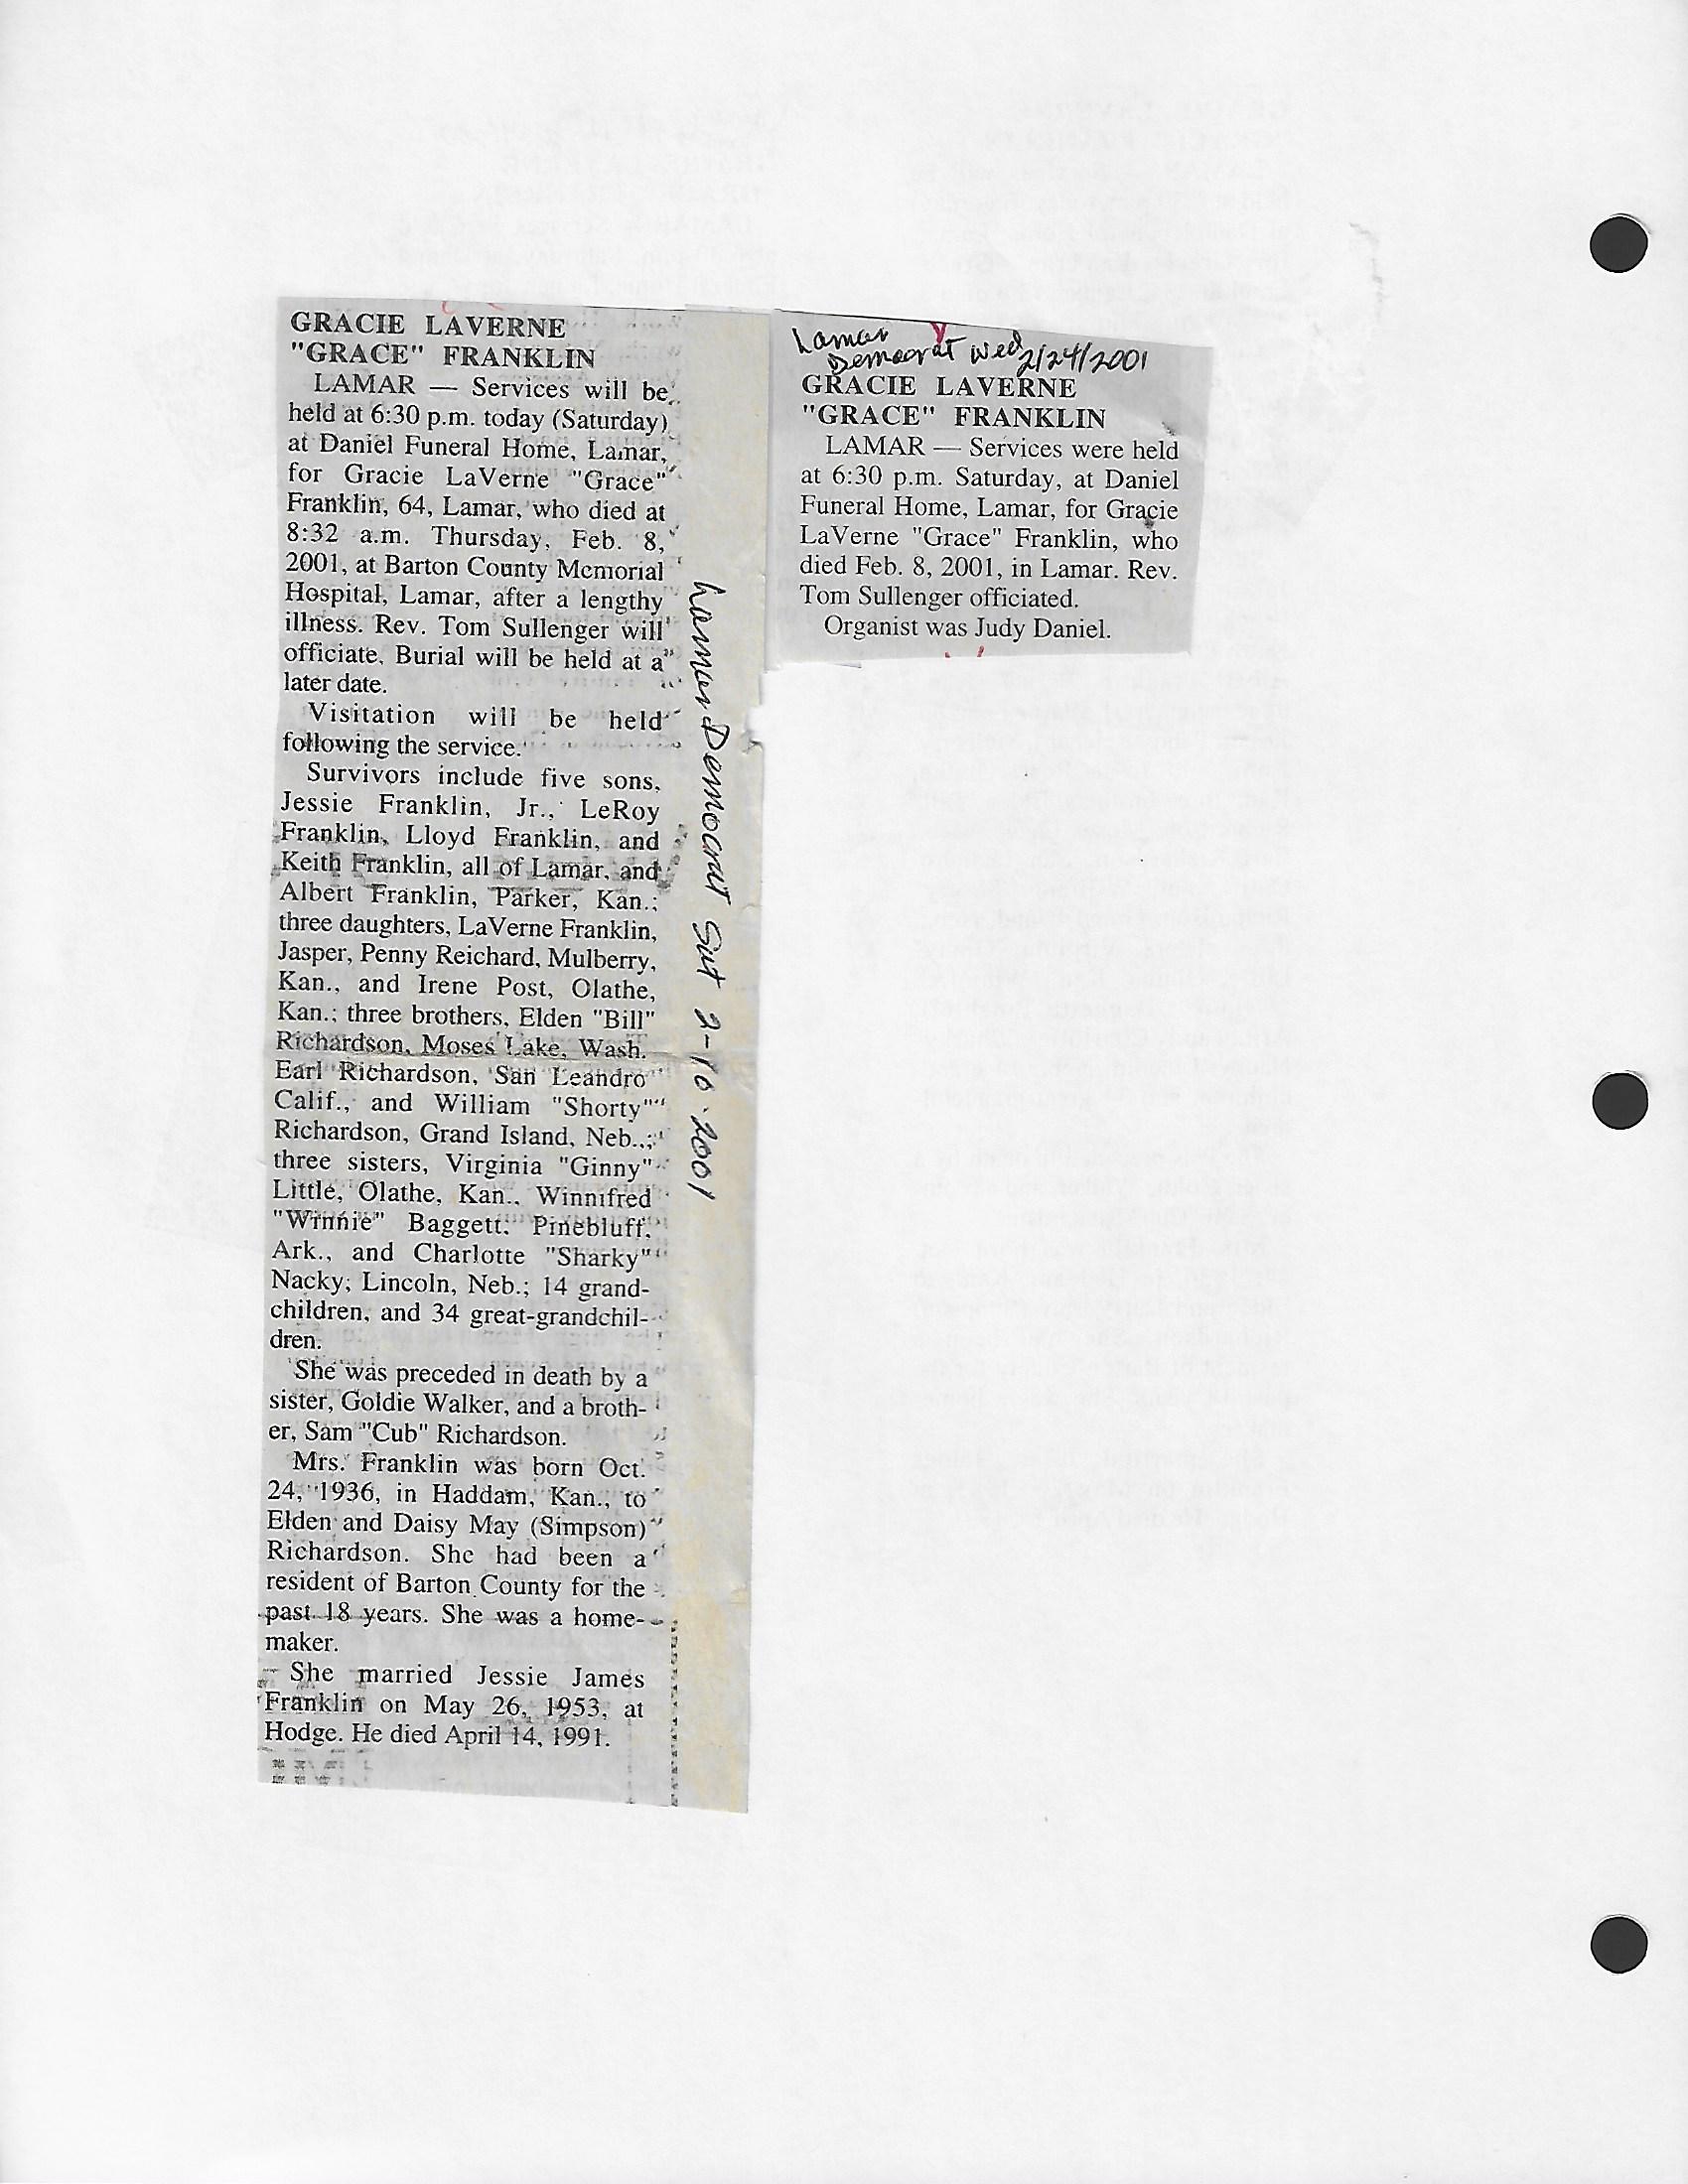 GRACIE LAVERNE
"GRACE" FRANKLIN
LAMAR — Services will be
held at 6:30 p.m. today (Saturday)
at Daniel Funeral Home, Lamar,
for Gracie LaVerne "Grace"
Franklin, 64, Lamar, who died at
8:32 a.m. Thursday, Feb. 8,
2001, at Barton County Memorial
Hospital, Lamar, after a lengthy
illness. Rev. Tom Sullenger will
officiate. Burial will be held at a
later date.
Visitation will be held
following the service.
Survivors include five sons,
Jessie Franklin, Jr., LeRoy
Franklin, Lloyd Franklin, and
Keith Franklin, all of Lamar, and
Albert Franklin, Parker, Kan.;
three daughters, LaVerne Franklin,
Jasper, Penny Reichard, Mulberry,
Kan., and Irene Post, Olathe,
Kan.; three brothers, Elden "Bill"
Richardson, Moses Lake, Wash.
Earl Richardson, San Leandro
Calif., and William "Shorty"
Richardson, Grand Island, Neb..;
three sisters, Virginia "Ginny"
Little, Olathe, Kan., Winnifred
"Winnie" Baggett, Pinebluff,
Ark., and Charlotte "Sharky"
Nacky; Lincoln, Neb.; 14 grand-
children, and 34 great-grandchil-
dren.
She was preceded in death by a
sister, Goldie Walker, and a broth-
er, Sam "Cub" Richardson.
Mrs. Franklin was born Oct.
24, 1936, in Haddam, Kan., to
Elden and Daisy May (Simpson)
Richardson. She had been a
resident of Barton County for the
past 18 years. She was a home-
maker.
She married Jessie James
Franklin on May 26, 1953, at
Hodge. He died April 14, 1991.
Lamar Democrat Sat 2-10-2001
Lamar
Democrat Wed 2/24/2001
GRACIE LAVERNE
"GRACE" FRANKLIN
LAMAR — Services were held
at 6:30 p.m. Saturday, at Daniel
Funeral Home, Lamar, for Gracie
LaVerne "Grace" Franklin, who
died Feb. 8, 2001, in Lamar. Rev.
Tom Sullenger officiated.
Organist was Judy Daniel.